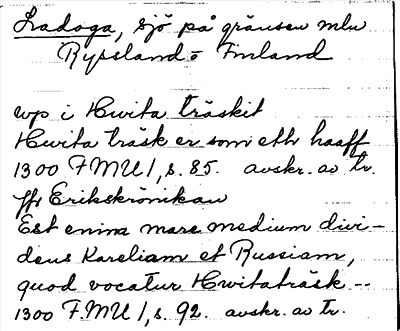 Ladoga, sjö på gränsen mln
Ryssland o Finland
wp i Hwita träskit
Hwita träsk er som ett haaff
1300 FMU 1, s. 85. avskr. av tr.
ffr Erikskrönikan
Est enim mare medium divi-
dens Kareliam et Russiam,
quod vocatur Hwitaträsk --
1300 FMU 1, s. 92. avskr. av tr.